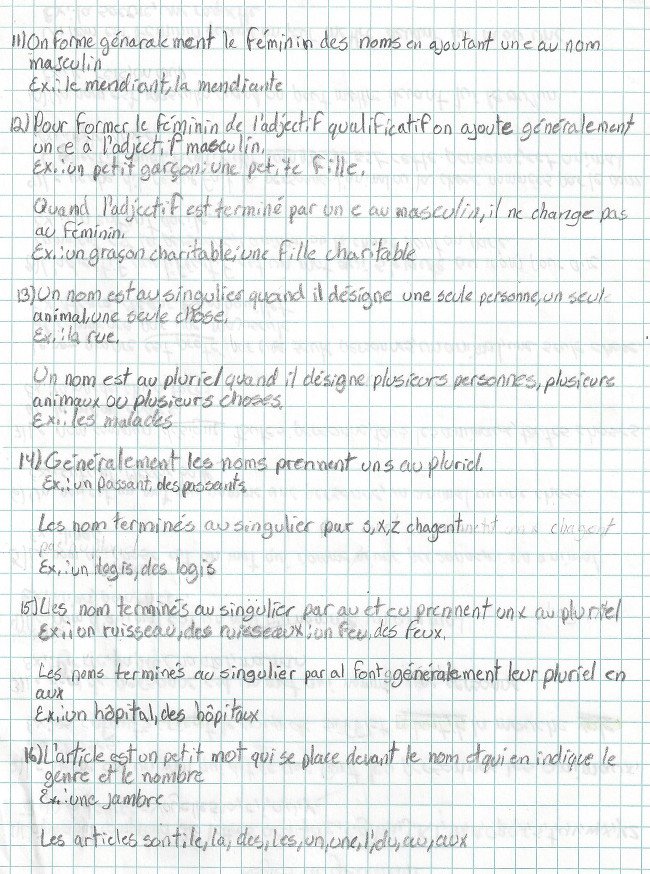 11) On forme génaralement le féminin des noms en ajoutant un e au nom
masculin
Ex.: le mendiant, la mendiante
12) Pour former le féminin de l'adjectif qualificatif on ajoute généralement
un e à l'adjectif masculin.
Ex.: un petit garçon: une petite fille.
Quand l'adjectif est terminé par un e au masculin, il ne change pas
au féminin.
Ex.: un graçon charitable; une fille charitable
13) Un nom est au singulier quand il désigne une seule personne, un seul
animal, une seule chose.
Ex.: la rue.
Un nom est au pluriel quand il désigne plusieurs personnes, plusieurs
animaux ou plusieurs choses.
Ex.: les malades
14) Généralement les noms prennent un s au pluriel.
Ex.: un passant, des passants
Les nom terminés au singulier par s, x, z chagent
Ex.: un logis, des logis
15) Les nom terminés au singulier par au et eu prennent un x au pluriel
Ex.: un ruisseau, des ruisseaux; un feu, des feux.
Les noms terminés au singulier par al font généralement leur pluriel en
aux
Ex.: un hôpital, des hôpitaux
16) L'article est un petit mot qui se place devant le nom et qui en indique le
genre et le nombre
Ex.: une jambre
Les articles sont: le, la, des, les, un, une, l', du, au, aux